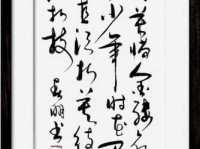 莫惜金縷
少年时花开
直须折莫待
折枝
明书